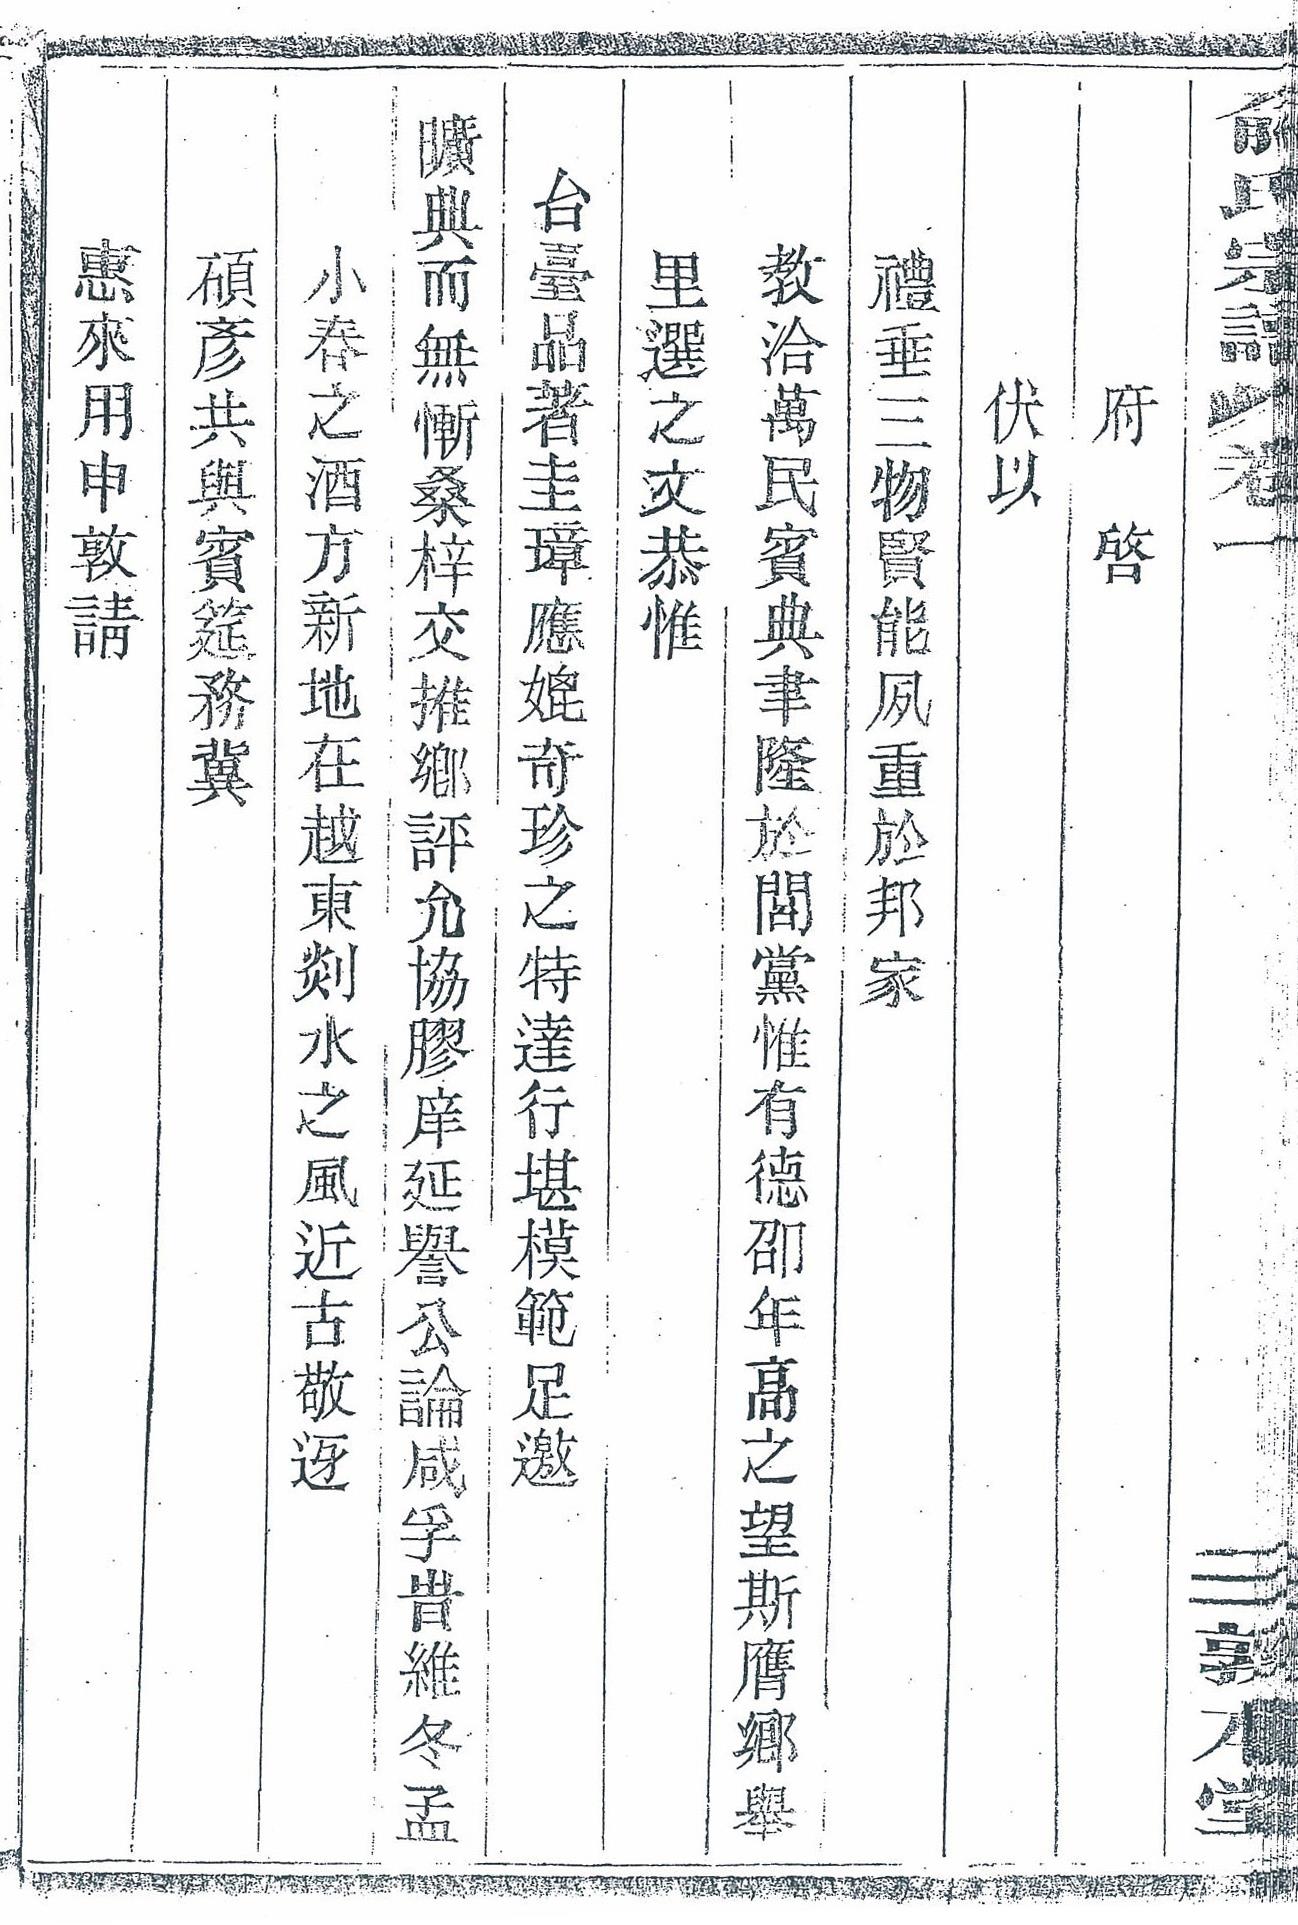 俞氏宗譜 卷一
府 啓
伏以
禮垂三物賢能夙重於邦家
教洽萬民賓典聿隆於閭黨惟有德卲年高之望斯膺鄉舉
里選之文恭惟
台臺品著圭璋應媲奇珍之特達行堪模範足邀
曠典而無慚桑梓交推鄉評允協膠庠延譽公論咸孚旹維冬孟
小春之酒方新地在越東剡水之風近古敬迓
碩彥共與賓筵務冀
惠來用申敦請
三 敦本堂